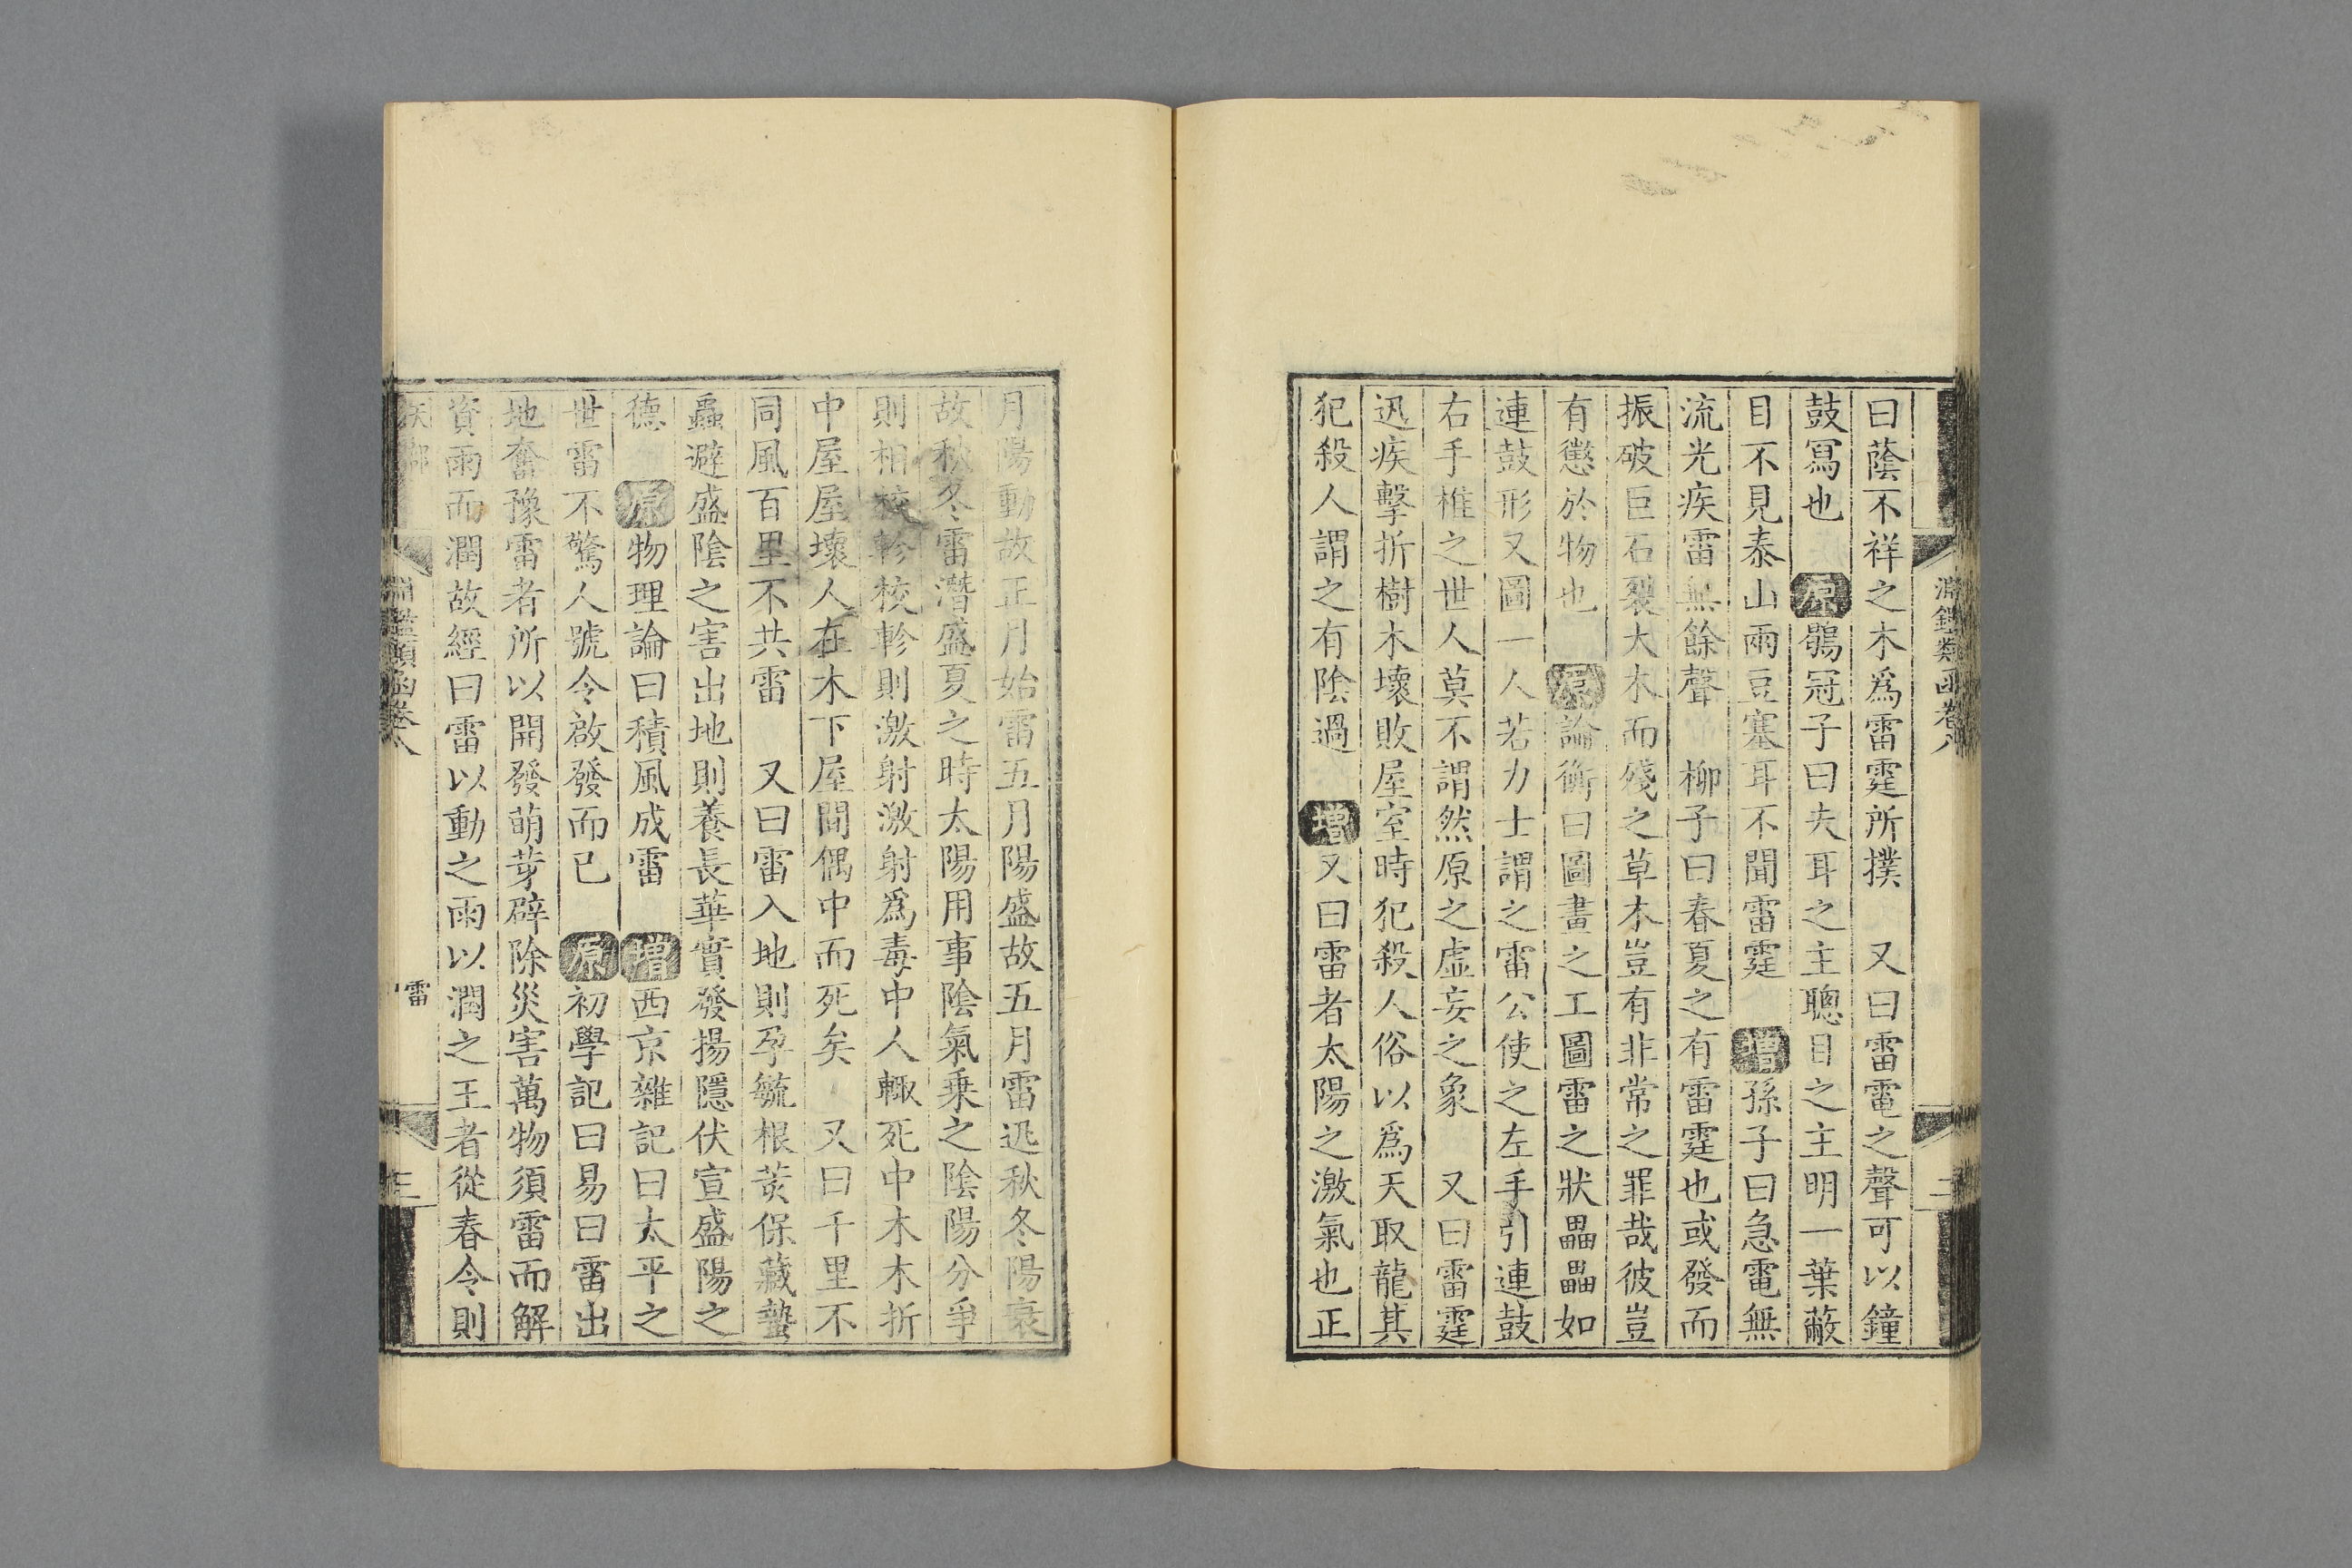 淵鑑類函卷八
二
曰蔭不祥之木爲雷霆所撲　又曰雷電之聲可以鐘
鼓冩也　原鶡冠子曰夫耳之主聰目之主明一葉蔽
目不見泰山兩豆塞耳不聞雷霆　增孫子曰急電無
流光疾雷無餘聲　柳子曰春夏之有雷霆也或發而
振破巨石裂大木木而殘之草木豈有非常之罪哉彼豈
有懲於物也　原論衡曰圖畫之工圖雷之狀畾畾如
連鼓形又圖一人若力士謂之雷公使之左手引連鼓
右手椎之世人莫不謂然原之虛妄之象　又曰雷霆
迅疾擊折樹木壞敗屋室時犯殺人俗以爲天取龍其
犯殺人謂之有陰過　增又曰雷者太陽之激氣也正
月陽動故正月始雷五月陽盛故五月雷迅秋冬陽衰
故秋冬雷潛盛夏之時太陽用事陰氣乗之陰陽分爭
則相校軫校軫則激射激射爲毒中人輙死中木木折
中屋屋壞人在木下屋間偶中而死矣　又曰千里不
同風百里不共雷　又曰雷入地則孕毓根荄保藏蟄
蟲避盛陰之害出地則養長華實發揚隱伏宣盛陽之
德　原物理論曰積風成雷　增西京雜記曰太平之
世雷不驚人號令啟發而已　原初學記曰易曰雷出
地奮豫雷者所以開發萌芽辟除災害萬物須雷而解
資雨而潤故經曰雷以動之雨以潤之王者從春令則
淵鑑類函卷八
雷
三